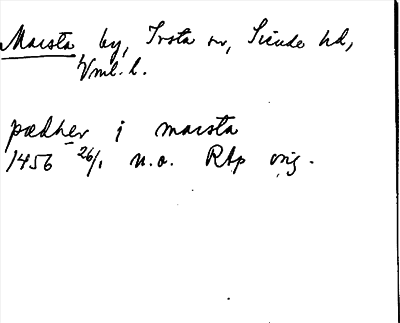 Marsta by, Irsta sn, Siende hd,
Vml. l.
pædher i marsta
1456 26/1 u.o. RAp orig.